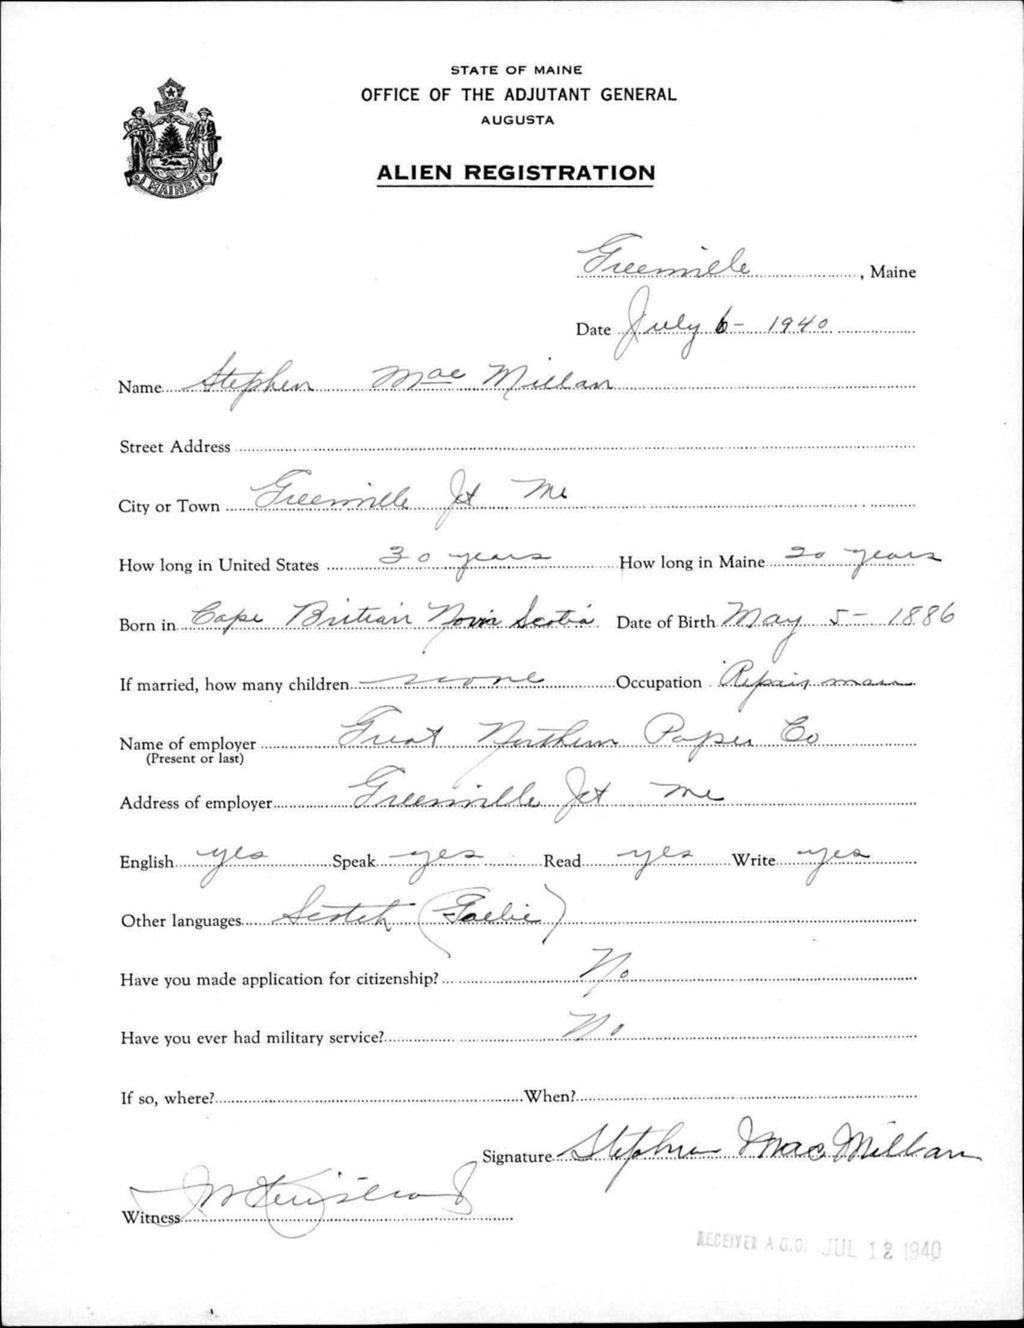 STATE OF MAINE
OFFICE OF THE ADJUTANT GENERAL
AUGUSTA
ALIEN REGISTRATION
MAINE
Greenville, Maine
Date July 6 - 1940
Name Stephen Mac Millan
Street Address
City or Town Greenville Jct Me
How long in United States 30 years How long in Maine 20 years
Born in Cape Britian Nova Scotia Date of Birth May 5 - 1886
If married, how many children none Occupation Repair man
Name of employer Great Northern Paper Co
(Present or last)
Address of employer Greenville Jct Me
English yes Speak yes Read yes Write yes
Other languages Scotch (Gaelic)
Have you made application for citizenship? No
Have you ever had military service? No
If so, where? When?
Signature Stephen Mac Millan
Witness
RECEIVED A.G.O. JUL 12 1940